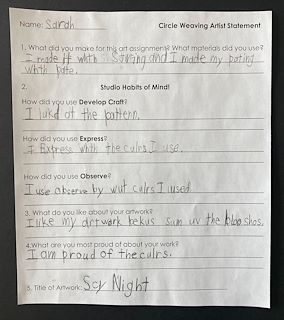 Name: Sarah Circle Weaving Artist Statement
1. What did you make for this art assignment? What materials did you use?
I made it with string and I made my pating
with pate.
2. Studio Habits of Mind!
How did you use Develop Craft?
I lukd at the pattern.
How did you use Express?
I Express with the culrs I use.
How did you use Observe?
I use observe by wut culrs I used.
3. What do you like about your artwork?
I like my artwork bekus sum uv the bloo shos.
4.What are you most proud of about your work?
I am proud of the culrs.
5. Title of Artwork: Scy Night